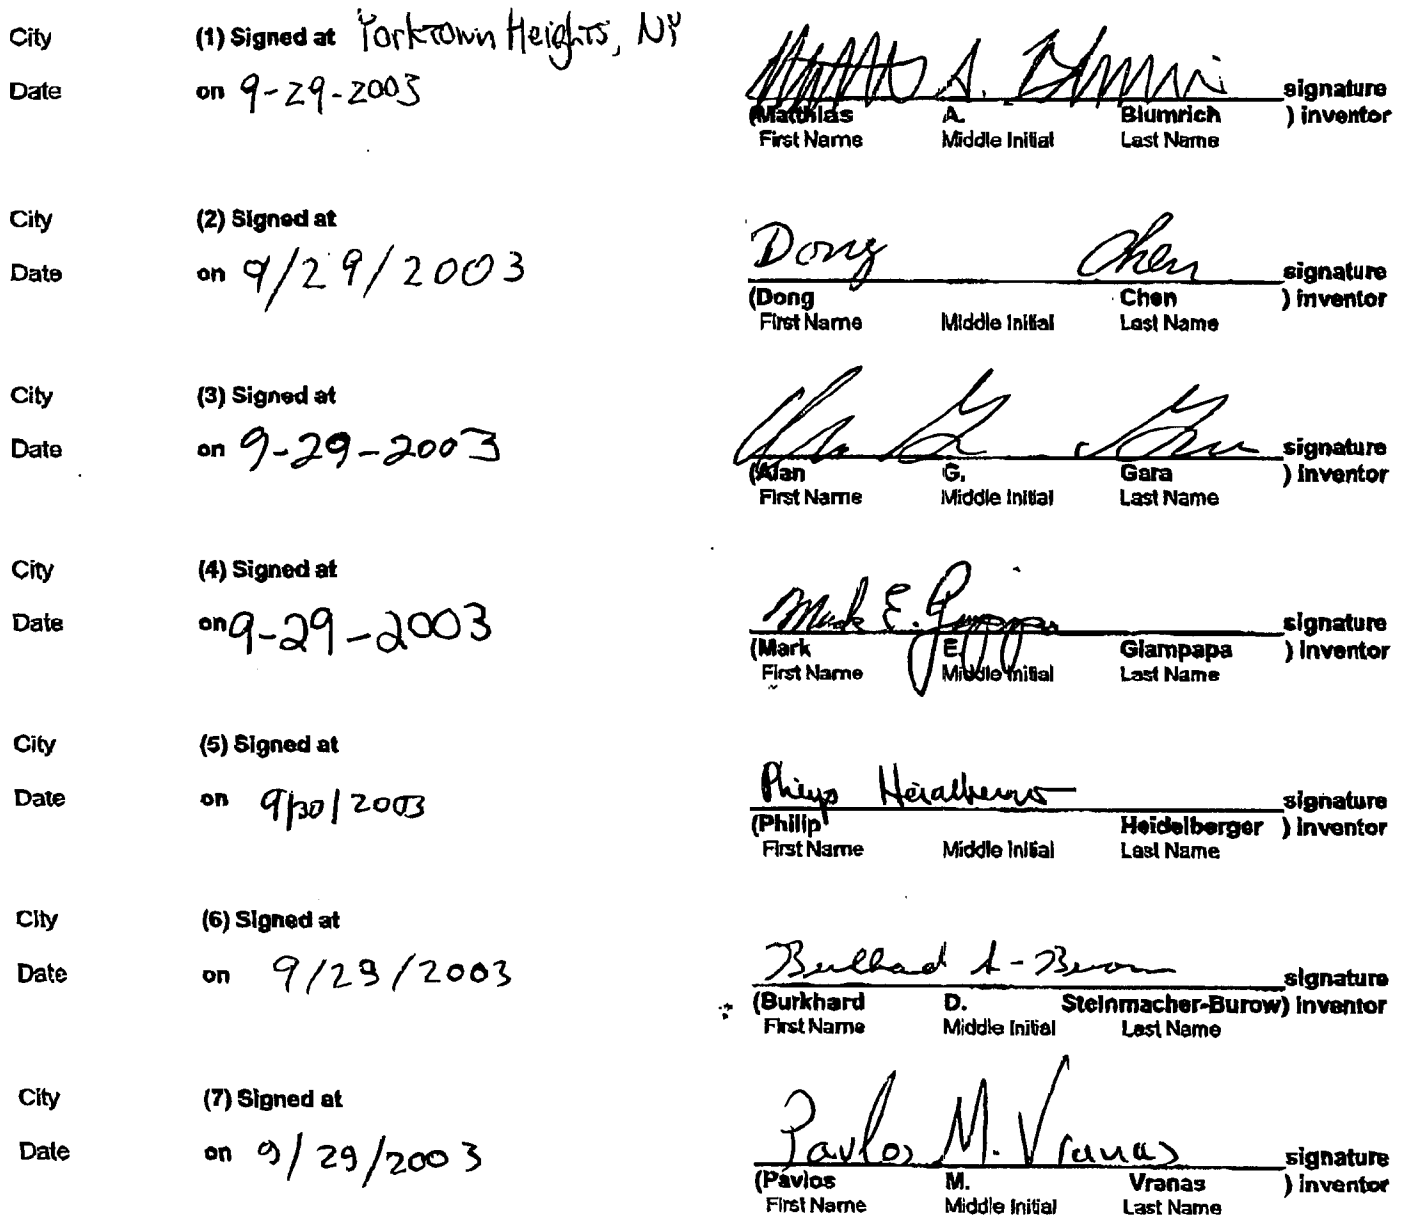 City (1) Signed at Yorktown Heights, NY
Date on 9-29-2003
Matthias A. Blumrich signature
(Matthias A. Blumrich ) inventor
First Name Middle Initial Last Name
City (2) Signed at
Date on 9/29/2003
Dong Chen signature
(Dong Chen ) inventor
First Name Middle Initial Last Name
City (3) Signed at
Date on 9-29-2003
Alan G. Gara signature
(Alan G. Gara ) inventor
First Name Middle Initial Last Name
City (4) Signed at
Date on 9-29-2003
Mark E. Giampapa signature
(Mark E. Giampapa ) inventor
First Name Middle Initial Last Name
City (5) Signed at
Date on 9/30/2003
Philip Heidelberger signature
(Philip Heidelberger ) inventor
First Name Middle Initial Last Name
City (6) Signed at
Date on 9/29/2003
Burkhard S-Burow signature
(Burkhard D. Steinmacher-Burow) inventor
First Name Middle Initial Last Name
City (7) Signed at
Date on 9/29/2003
Pavlos M. Vranas signature
(Pavlos M. Vranas ) inventor
First Name Middle Initial Last Name